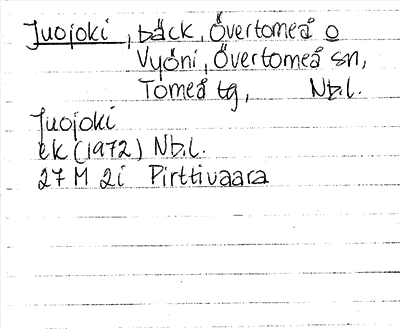 Juojoki, bäck, Övertorneå o
Vyöni, Övertorneå sn,
Torneå tg, Nb.l.
Juojoki
ek (1972) Nb.l.
27 M 2i Pirttivaara